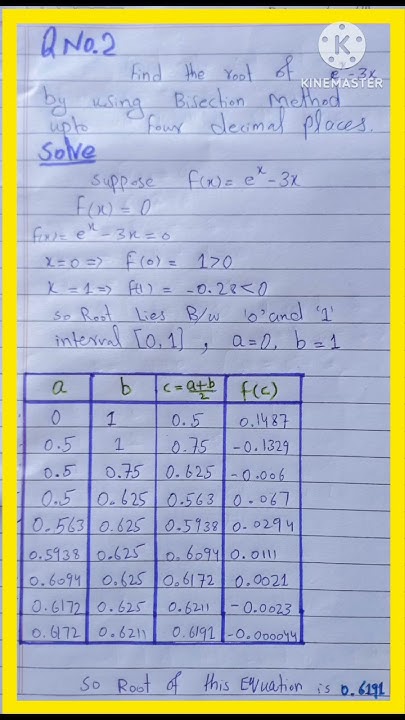 Q No.2
Find the root of e - 3x
KINEMASTER
by using Bisection Method
upto four decimal places.
Solve
suppose f(x) = eˣ - 3x
f(x) = 0
f(x) = eˣ - 3x = 0
x=0 => f(0) = 1>0
x = 1 => f(1) = -0.28<0
so Root lies B/w '0' and '1'
interval [0,1] , a=0, b=1
a b c = a+b/2 f(c)
0 1 0.5 0.1487
0.5 1 0.75 -0.1329
0.5 0.75 0.625 -0.006
0.5 0.625 0.563 0.067
0.563 0.625 0.5938 0.0294
0.5938 0.625 0.6094 0.0111
0.6094 0.625 0.6172 0.0021
0.6172 0.625 0.6211 -0.0023
0.6172 0.6211 0.6191 -0.000044
So Root of this Equation is 0.6191